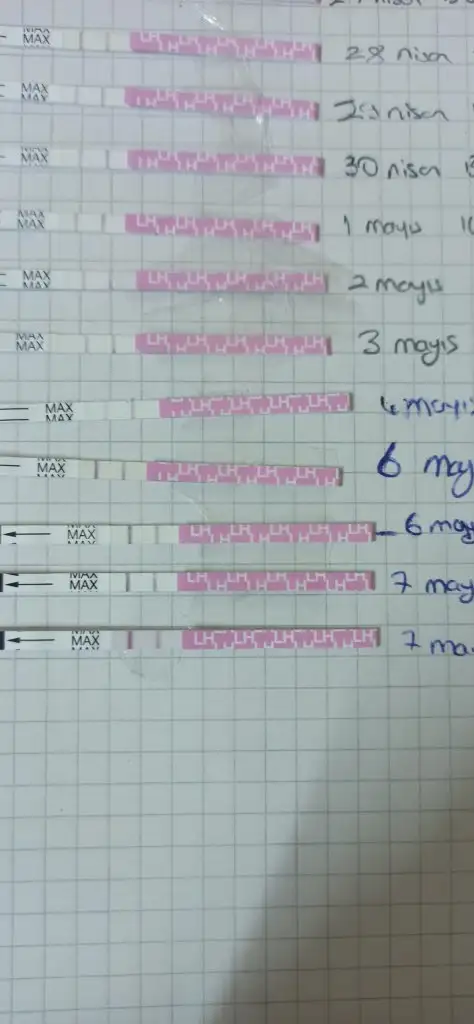 MAX LH LH LH LH LH 28 nisan
MAX LH LH LH LH LH 29 nisan
MAX LH LH LH LH LH 30 nisan
MAX LH LH LH LH LH 1 mayıs
MAX LH LH LH LH LH 2 mayıs
MAX LH LH LH LH LH 3 mayıs
MAX LH LH LH LH LH 4 mayıs
MAX LH LH LH LH LH 6 may
MAX LH LH LH LH LH 6 may
MAX LH LH LH LH LH 7 may
MAX LH LH LH LH LH 7 ma